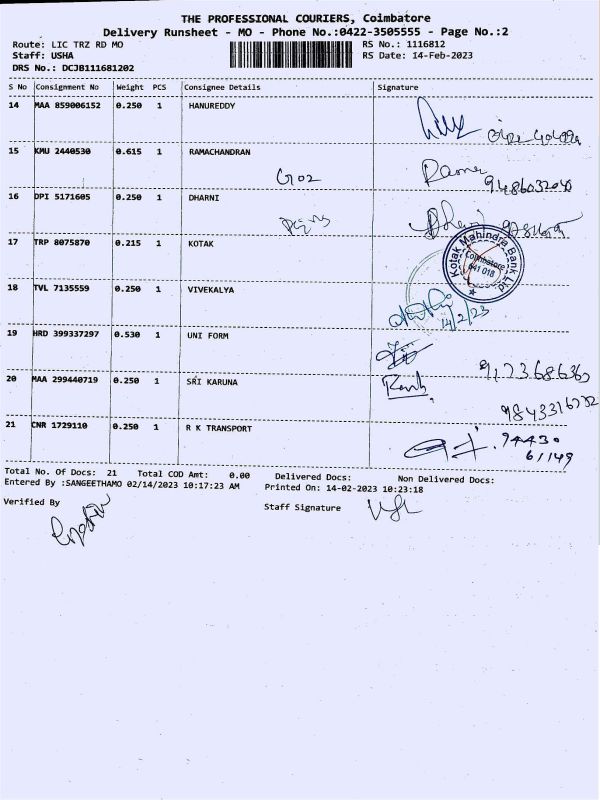 THE PROFESSIONAL COURIERS, Coimbatore
Delivery Runsheet - MO - Phone No.:0422-3505555 - Page No.:2
Route: LIC TRZ RD MO
RS No.: 1116812
Staff: USHA
RS Date: 14-Feb-2023
DRS No.: DCJB111681202
S No Consignment No Weight PCS Consignee Details Signature
14 MAA 859006152 0.250 1 HANUREDDY
15 KMU 2440530 0.615 1 RAMACHANDRAN
9486032040
16 DPI 5171605 0.250 1 DHARNI
17 TRP 8075870 0.215 1 KOTAK
Kotak Mahindra Bank Ltd
Coimbatore
641 018
18 TVL 7135559 0.250 1 VIVEKALYA
14/2/23
19 HRD 399337297 0.530 1 UNI FORM
20 MAA 299440719 0.250 1 SRI KARUNA
21 CNR 1729110 0.250 1 R K TRANSPORT
94430
61149
Total No. Of Docs: 21 Total COD Amt: 0.00 Delivered Docs: Non Delivered Docs:
Entered By :SANGEETHAMO 02/14/2023 10:17:23 AM Printed On: 14-02-2023 10:23:18
Verified By
Staff Signature